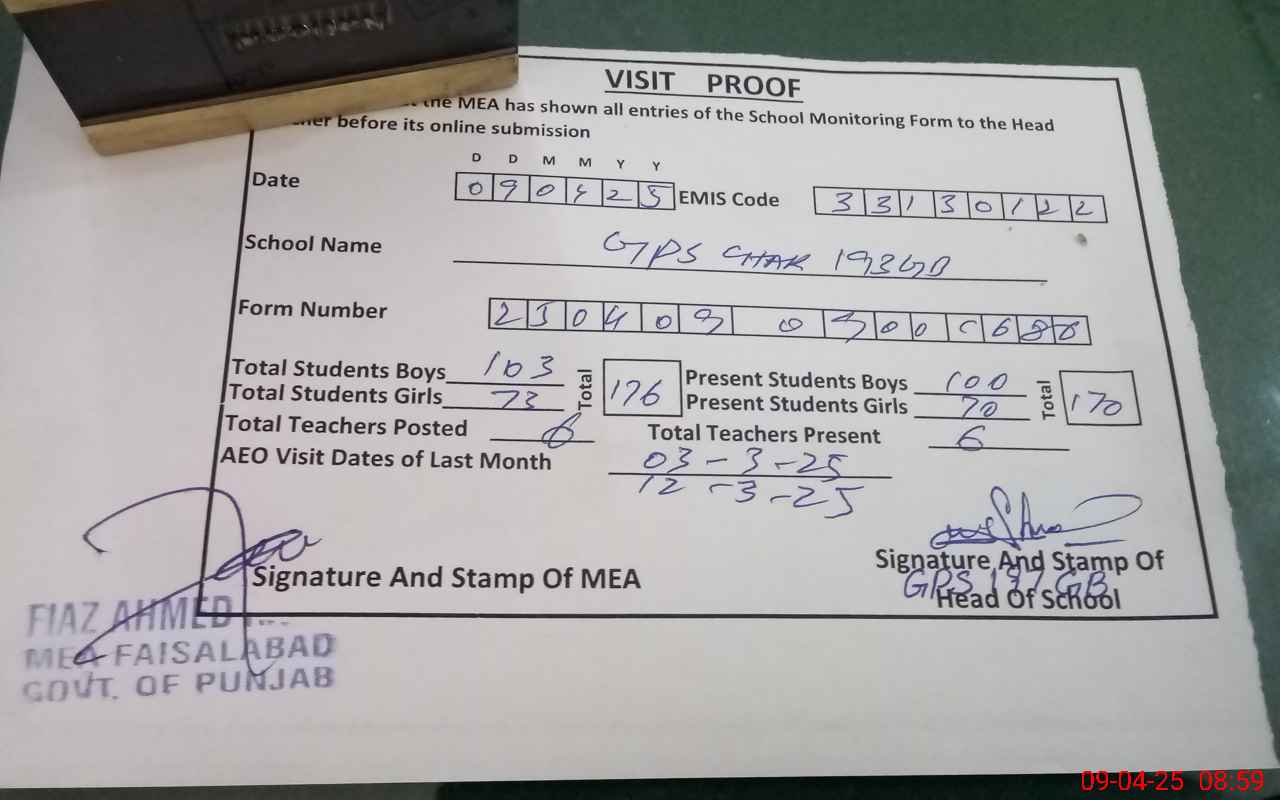 VISIT PROOF
the MEA has shown all entries of the School Monitoring Form to the Head
before its online submission
D D M M Y Y
Date 0 9 0 4 2 5 EMIS Code 3 3 1 3 0 1 2 2
School Name GPS CHAK 193GB
Form Number
Total Students Boys 103 Total 176 Present Students Boys 100 Total 170
Total Students Girls 73 Present Students Girls 70
Total Teachers Posted 6 Total Teachers Present 6
AEO Visit Dates of Last Month 03-3-25
12-3-25
Signature And Stamp Of MEA
Signature And Stamp Of
GPS GB
Head Of School
FIAZ AHMED
MEA FAISALABAD
GOVT. OF PUNJAB
09-04-25 08:59